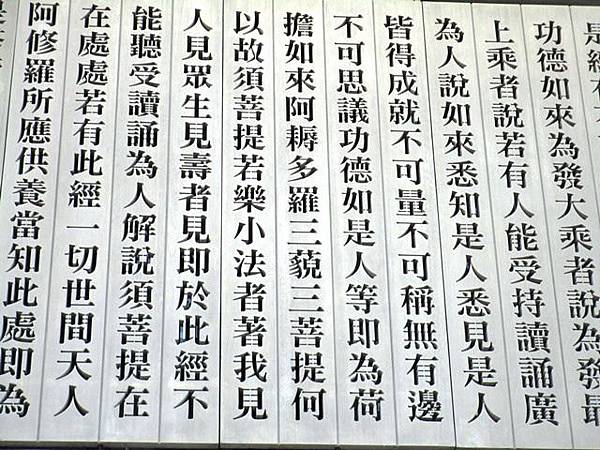 是經有
功德如來為發大乘者說為發最
上乘者說若有人能受持讀誦廣
為人說如來悉知是人悉見是人
皆得成就不可量不可稱無有邊
不可思議功德如是人等即為荷
擔如來阿耨多羅三藐三菩提何
以故須菩提若樂小法者著我見
人見眾生見壽者見即於此經不
能聽受讀誦為人解說須菩提在
在處處若有此經一切世間天人
阿修羅所應供養當知此處即為